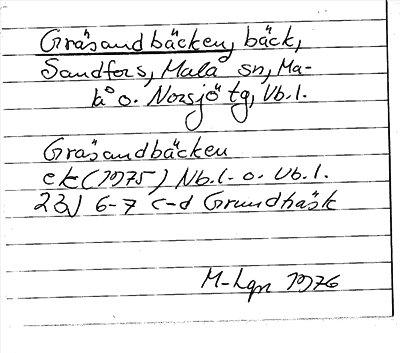 Gräsandbäcken, bäck,
Sandfors, Malå sn, Ma-
lå o. Norsjö tg, Vb.l.
Gräsandbäcken
ek (1975) Nb.l. o. Vb.l.
23J 6-7 c-d Grundträsk
M-Lgn 1976